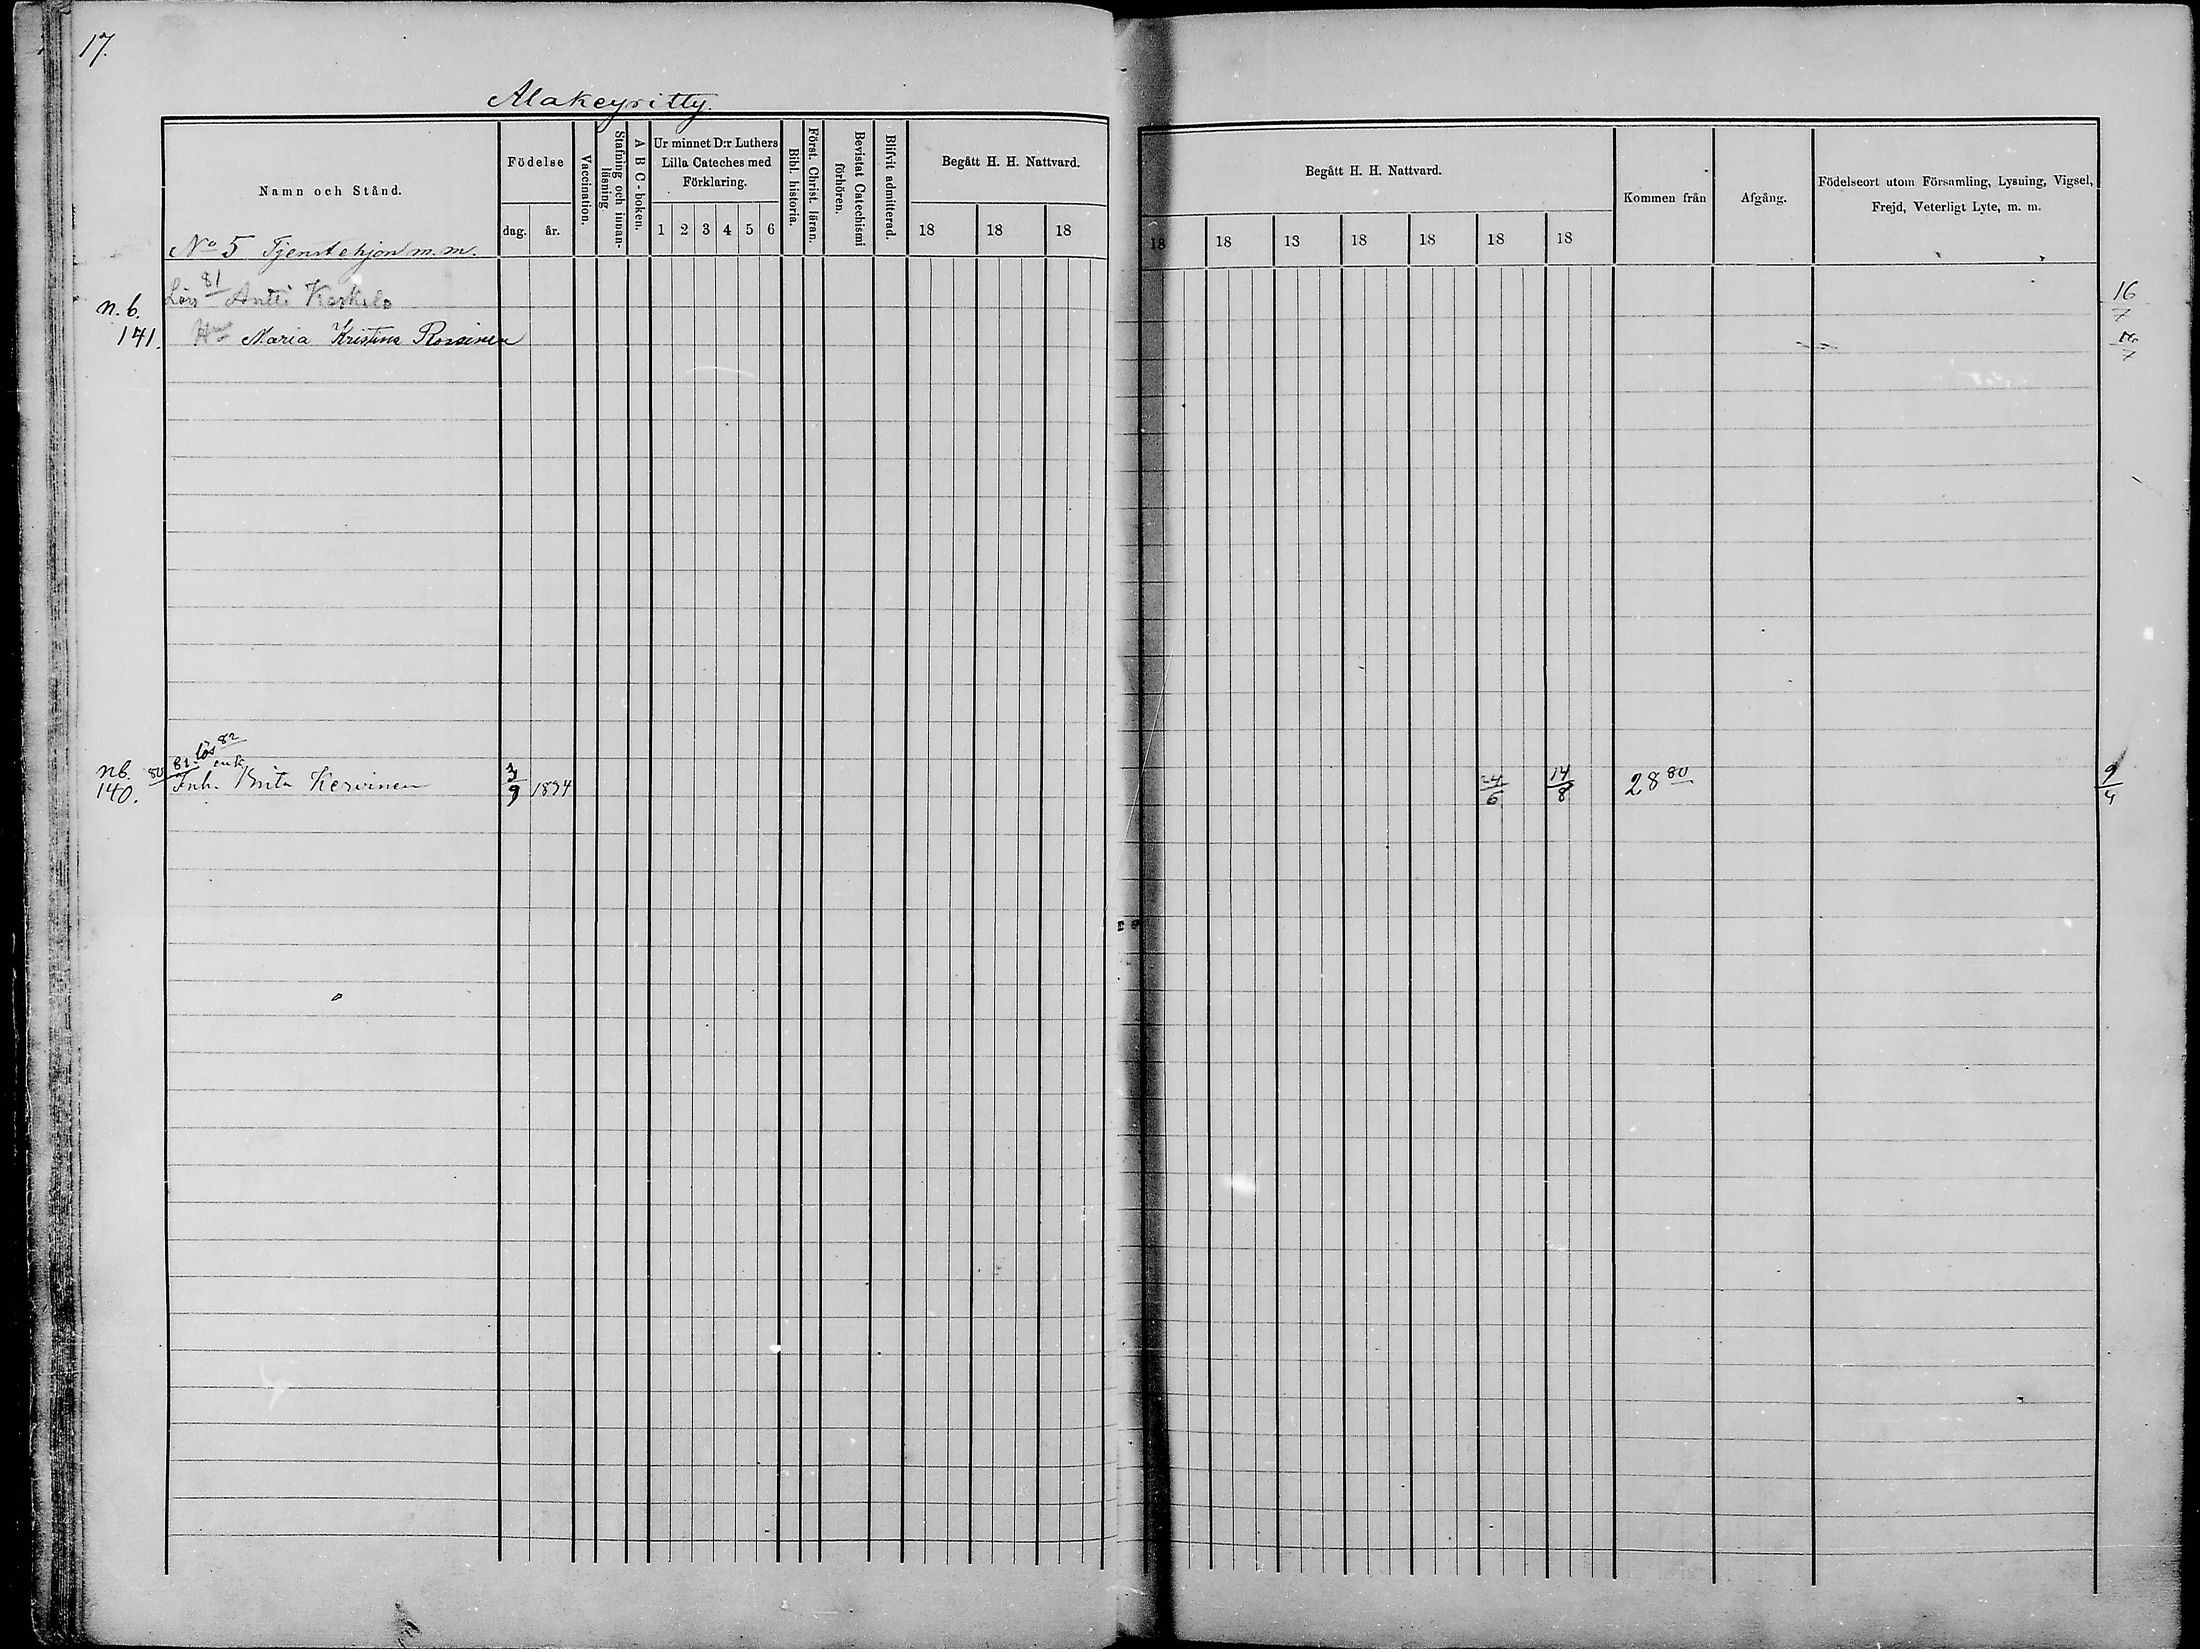 17.
Alakeyritty.
Namn och Stånd.
Födelse
dag.
år.
Vaccination.
Stafning och innan-
läsning.
A B C-boken.
Ur minnet D:r Luthers
Lilla Cateches med
Förklaring.
1 2 3 4 5 6
Bibl. historia.
Först. Christ. läran.
Bevistat Catechismi
förhören.
Blifvit admitterad.
Begått H. H. Nattvard.
18 18 18
Begått H. H. Nattvard.
18 18 18 18 18 18 18
Kommen från
Afgång.
Födelseort utom Församling, Lysning, Vigsel,
Frejd, Veterligt Lyte, m. m.
No 5 Tjenstehjon m. m.
81
n. b. Antti 16/7
141. Hu Maria Kristina
82
lös
enk
nb. 80 81
140. Inh. Brita Kervinen 3/9 1834 24/6 14/8 28 80 9/4